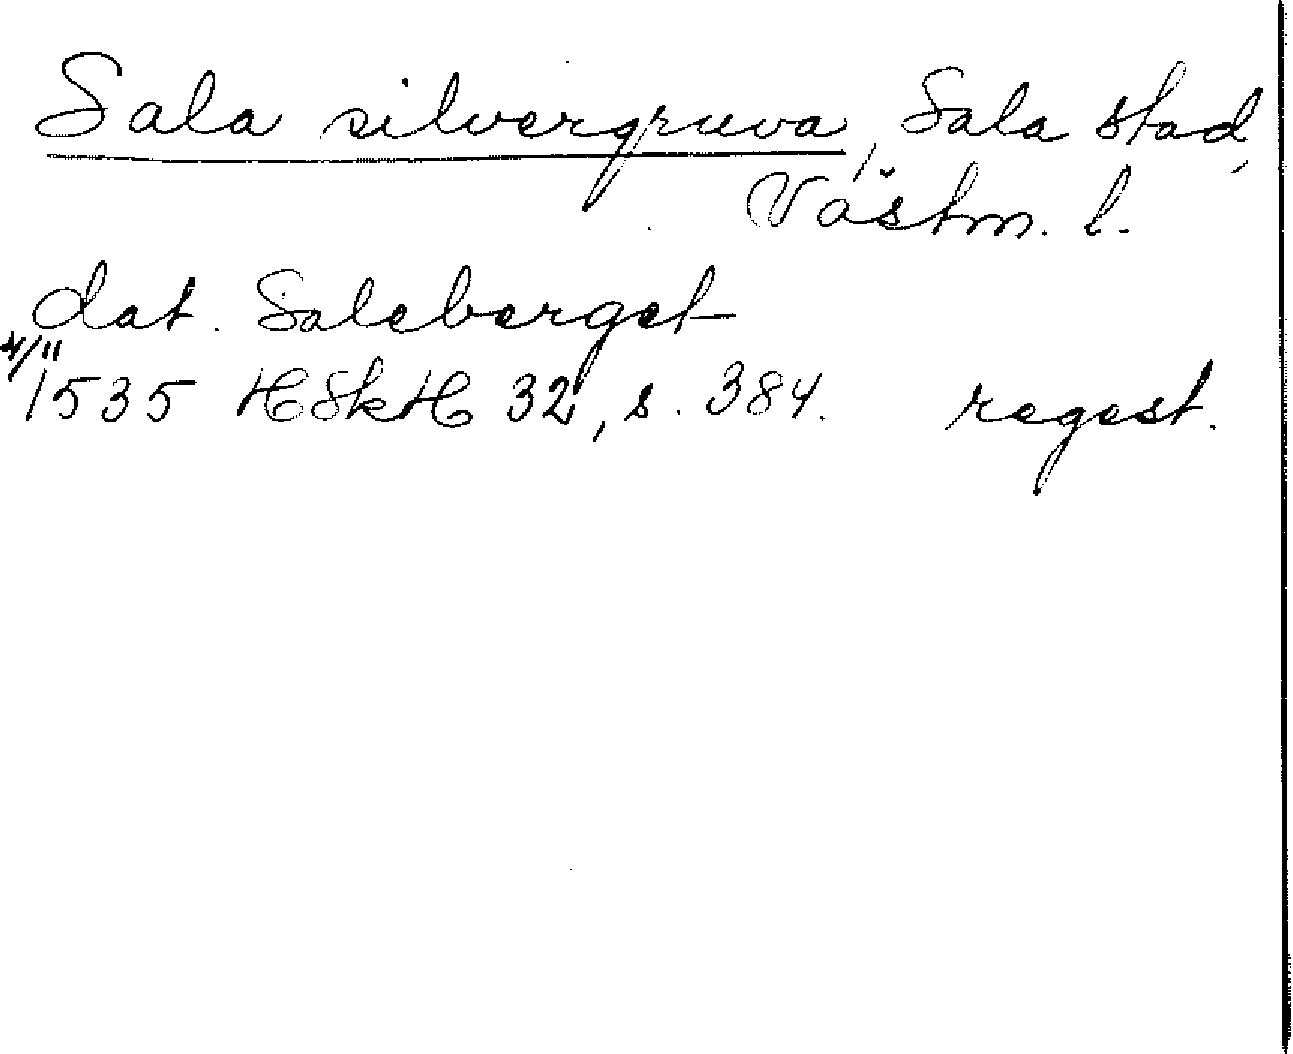 Sala silvergruva, Sala stad,
Västm. l.
dat. Saleberget
4/11
1535 HSkH 32, s. 384. regest.